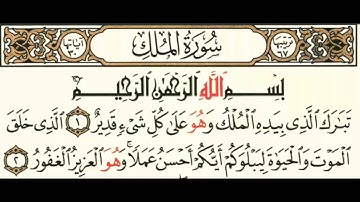 ترتيبها ٦٧
سُورَةُ المُلْكِ
آياتها ٣٠
بِسْمِ ٱللَّهِ ٱلرَّحْمَٰنِ ٱلرَّحِيمِ
تَبَٰرَكَ ٱلَّذِى بِيَدِهِ ٱلْمُلْكُ وَهُوَ عَلَىٰ كُلِّ شَىْءٍ قَدِيرٌ ١ ٱلَّذِى خَلَقَ
ٱلْمَوْتَ وَٱلْحَيَوٰةَ لِيَبْلُوَكُمْ أَيُّكُمْ أَحْسَنُ عَمَلًا ۚ وَهُوَ ٱلْعَزِيزُ ٱلْغَفُورُ ٢